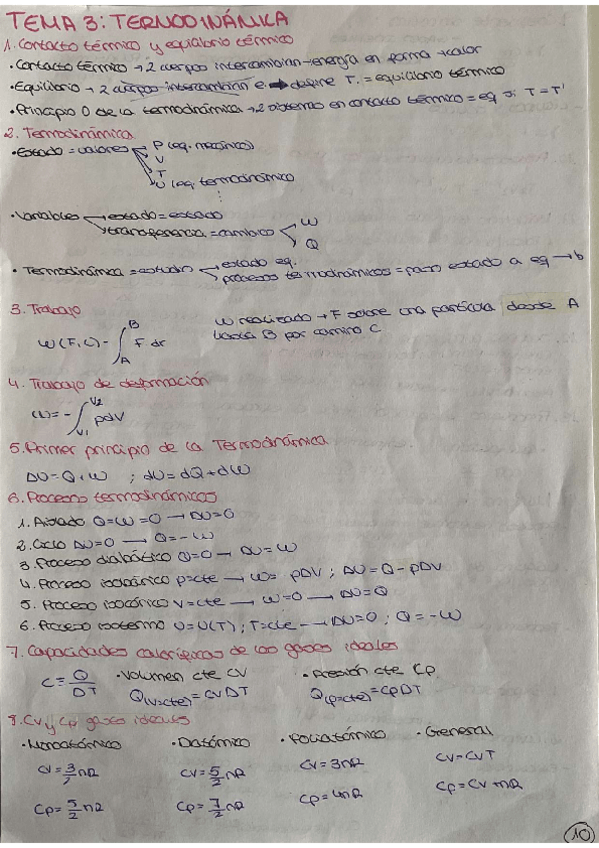 TEMA 3: TERMODINÁMICA
1. Contacto térmico y equilibrio térmico
• Contacto térmico → 2 cuerpos intercambian → energía en forma → calor
• Equilibrio → 2 cuerpos intercambian e → define T. = equilibrio térmico
• Principio 0 de la termodinámica → 2 sistemas en contacto térmico = eq si T = T'
2. Termodinámica
• Estado = valores P (eq. mecánico)
V
T
U (eq. termodinámico)
⋮
• Variables estado = estado
transferencia = cambios W
Q
• Termodinámica = estudia estado eq.
procesos termodinámicos = paso estado a eq → b
3. Trabajo
W realizado → F sobre una partícula desde A
hasta B por camino C
W(F,C) = ∫_A^B F dr
4. Trabajo de deformación
W = - ∫_V1^V2 pdV
5. Primer principio de la Termodinámica
ΔU = Q + W ; dU = dQ + dW
6. Procesos termodinámicos
1. Aislado Q=W=0 → ΔU=0
2. Ciclo ΔU=0 → Q=-W
3. Proceso diabático Q=0 → ΔU=W
4. Proceso isobárico p=cte → W= -pΔV ; ΔU=Q-pΔV
5. Proceso isocórico V=cte → W=0 → ΔU=Q
6. Proceso isotermo U=U(T) ; T=cte → ΔU=0 ; Q=-W
7. Capacidades caloríficas de los gases ideales
C = Q/ΔT • Volumen cte CV • Presión cte Cp
Q(V=cte) = CVΔT Q(P=cte) = CPΔT
8. CV y Cp gases ideales
• Monoatómico • Diatómico • Poliatómico • General
CV = 3/2 nR CV = 5/2 nR CV = 3nR CV = CVT
Cp = 5/2 nR Cp = 7/2 nR Cp = 4nR Cp = CV + nR
10